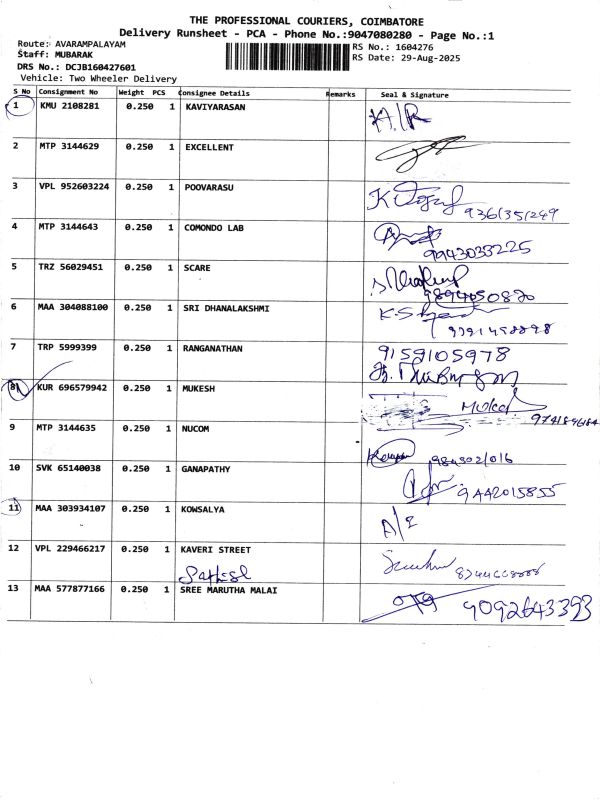 THE PROFESSIONAL COURIERS, COIMBATORE
Delivery Runsheet - PCA - Phone No.:9047080280 - Page No.:1
Route: AVARAMPALAYAM
Staff: MUBARAK
DRS No.: DCJB160427601
Vehicle: Two Wheeler Delivery
RS No.: 1604276
RS Date: 29-Aug-2025
S No Consignment No Weight PCS Consignee Details Remarks Seal & Signature
1 KMU 2108281 0.250 1 KAVIYARASAN
2 MTP 3144629 0.250 1 EXCELLENT
3 VPL 952603224 0.250 1 POOVARASU
4 MTP 3144643 0.250 1 COMONDO LAB
9943033225
5 TRZ 56029451 0.250 1 SCARE
9894050820
6 MAA 304088100 0.250 1 SRI DHANALAKSHMI
7 TRP 5999399 0.250 1 RANGANATHAN 9159105978
8 KUR 696579942 0.250 1 MUKESH
9 MTP 3144635 0.250 1 NUCOM
10 SVK 65140038 0.250 1 GANAPATHY
9442015855
11 MAA 303934107 0.250 1 KOWSALYA
12 VPL 229466217 0.250 1 KAVERI STREET
Sathish
13 MAA 577877166 0.250 1 SREE MARUTHA MALAI 9092643393